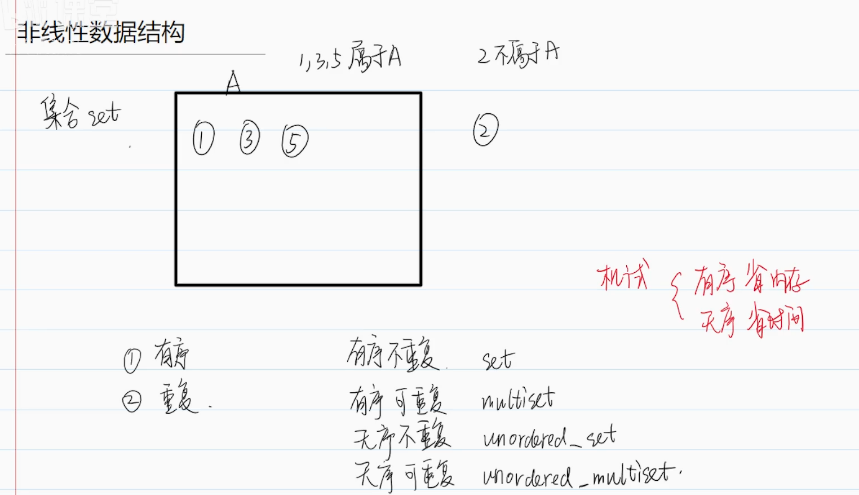 非线性数据结构
1,3,5 属于A
2不属于A
集合 set
A
① ③ ⑤
②
机试
有序 省内存
无序 省时间
① 有序
② 重复.
有序不重复 set
有序可重复 multiset
无序不重复 unordered_set
无序可重复 unordered_multiset.